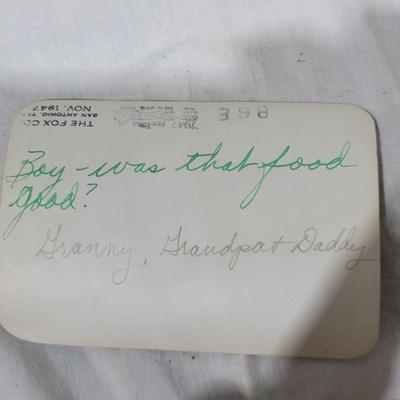 THE FOX CO.
SAN ANTONIO, TEX
NOV. 1947
863
Boy - was that food
good?
Granny, Grandpa + Daddy